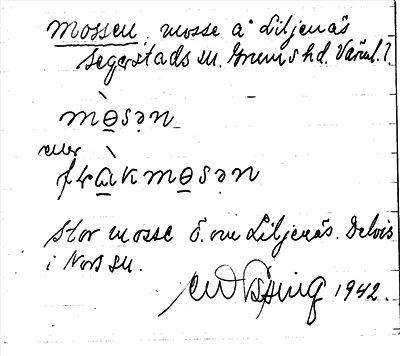 Mossen, mosse å Liljenäs
Segerstads sn. Grums hd. Värml.
mòsən
eller
fràkmosən
Stor mosse ö. om Liljenäs. Delvis
i Nors sn.
1942.